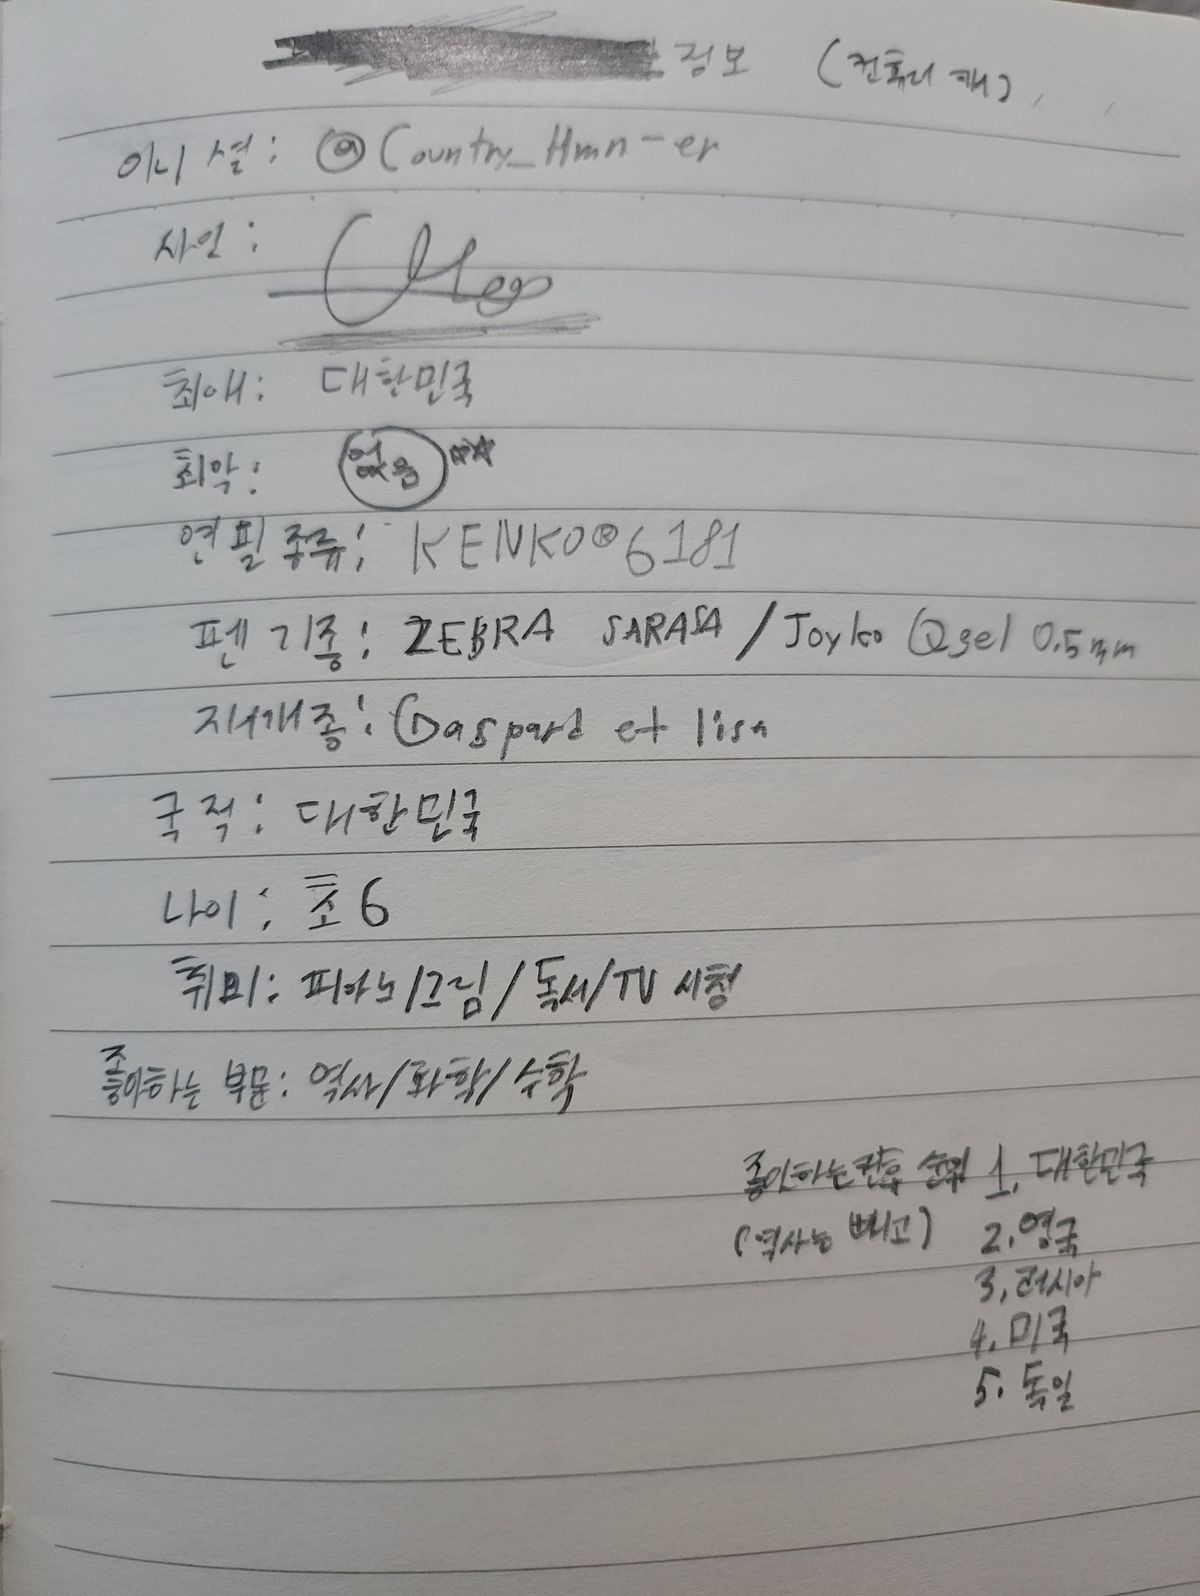 정보 (컨트리 캐)
이니셜: @Country_Hmn-er
사인:
최애: 대한민국
최악: 없음 ☆★
연필 종류: KENKO® 6181
펜 기종: ZEBRA SARASA / Joyko Qgel 0.5mm
지개종: Gaspard et lisa
국적: 대한민국
나이: 초6
취미: 피아노/그림/독서/TV 시청
좋아하는 부문: 역사/화학/수학
좋아하는 컨휴 순위 1. 대한민국
(역사는 빼고) 2. 영국
3. 러시아
4. 미국
5. 독일